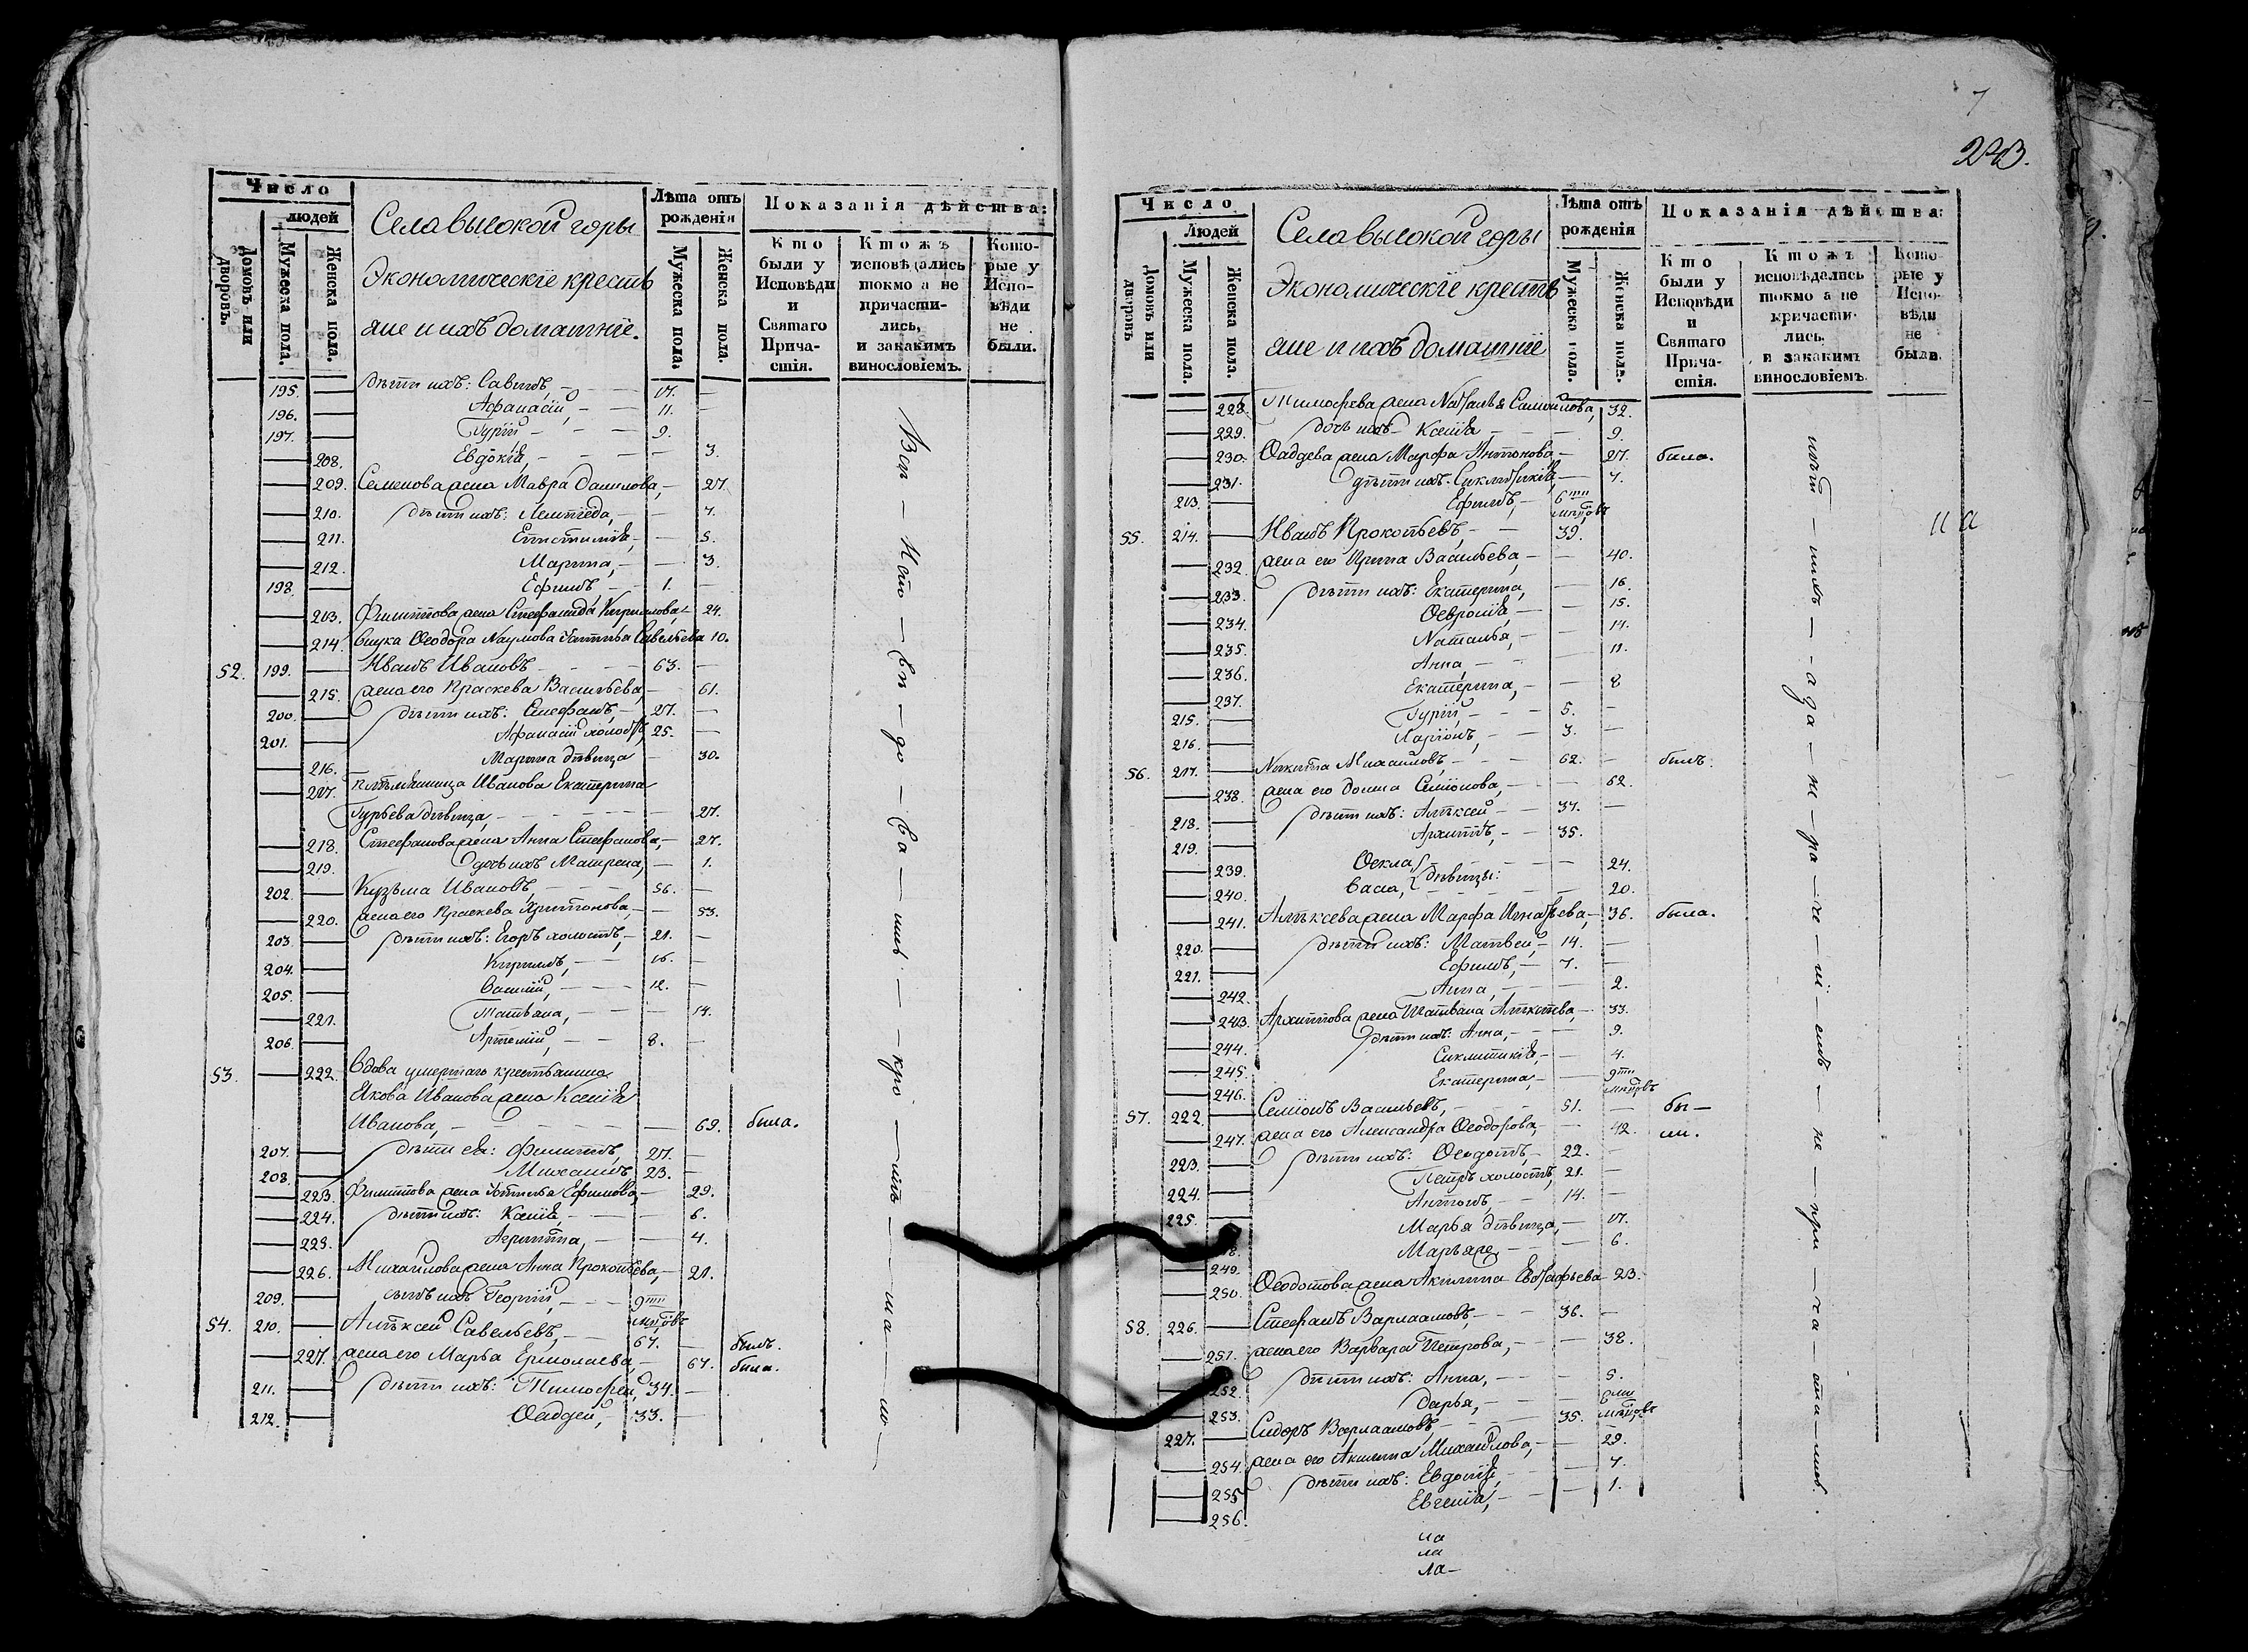 Число
людей
Домовъ или дворовъ.
Мужеска пола.
Женска пола.
Села высокой горы
Экономическіе крестъ
яне и ихъ домашніе.
Лѣта отъ рожденія
Мужеска пола.
Женска пола.
Показанія дѣйства:
Кто были у Исповѣди и Святаго Причастія.
Ктожъ исповѣдались токмо а не причастились, и закакимъ винословіемъ.
Которые у Исповѣди не были.
195. — дѣти ихъ: Савинъ, — 17. —
196. — Афанасій, — 11. —
197. — Гурій — 9.
— 208. Евдокія, — 3.
— 209. Семенова жена Мавра Данилова, — 27.
— 210. дѣти ихъ: — 7.
— 211. — 5.
— 212. Марина, — 3.
198. — Ефимъ, — 1. —
— 213. Филиппова жена Стефанида Кирилова, 24.
— 214. внука Ѳеодора Наумова Устинья Савельева 10.
52. 199. — Иванъ Ивановъ — 63. —
— 215. жена его Праскева Васильева, — 61.
200. — дѣти ихъ: Стефанъ, — 27. —
201. — Афанасій холостъ, 25. —
— 216. Марина дѣвица — 30.
— 217. племянница Иванова Екатерина
Гурьева дѣвица, — 27.
— 218. Стефанова жена Анна Стефанова, — 27.
— 219. дочь ихъ Матрена, — 1.
202. — Кузьма Ивановъ, — 56. —
— 220. жена его Праскева Харитонова, — 53.
203. — дѣти ихъ: Егоръ холостъ, — 21. —
204. — Кирилъ, — 16. —
205. — Василій, — 12. —
— 221. Татьяна, — 14.
206. — Артемій, — 8. —
53. — 222. Вдова умершаго крестьянина
Якова Иванова жена Ксенія
Иванова, — 69. была.
207. — дѣти ея: Филиппъ, 27. —
208. — Михаилъ 23. —
— 223. Филиппова жена Устинья Ефимова, — 29.
— 224. дѣти ихъ: Ксенія, — 6.
— 225. Агрипина, — 4.
— 226. Михайлова жена Анна Прокопьева, — 21.
209. — сынъ ихъ Георгій, — 9ти мѣсцовъ
54. 210. — Алѣксей Савельевъ, — 67. — былъ.
— 227. жена его Марья Ермолаева, — 67. была.
211. — дѣти ихъ: Тимофей, 34. —
212. — Ѳадѣй, — 33. —
7
223.
Число
Людей
Домовъ или дворовъ
Мужеска пола.
Женска пола.
Села высокой горы
Экономическіе крестъ
яне и ихъ домашніе
Лѣта отъ рожденія
Мужеска пола.
Женска пола.
Показанія дѣйства:
Кто были у Исповѣди и Святаго Причастія.
Ктожъ исповѣдались токмо а не причастились, и закакимъ винословіемъ.
Которые у Исповѣди не были.
— 228. Тимофеева жена Наталья Самойлова, 32.
— 229. дочь ихъ Ксенія — 9.
— 230. Ѳадѣева жена Марфа Антонова — 27. была.
— 231. дѣти ихъ: Сиклитикія, — 7.
213. — Ефимъ, — 6ти мѣсцовъ
55. 214. — Иванъ Прокопьевъ, — 39.
— 232. жена его Ирина Васильева, — 40.
— 233. дѣти ихъ: Екатерина, — 16.
— 234. Ѳевронія, — 15.
— 235. Наталья, — 14.
— 236. Анна, — 11.
— 237. Екатерина, — 8
215. — Гурій, — 5. —
216. — Ларіонъ, — 3. —
56. 217. — Никита Михайловъ — 62. — былъ.
— 238. жена его Домна Симіонова, — 62.
218. — дѣти ихъ: Алѣксей — 37. —
219. — Архипъ, — 35.
— 239. Ѳекла — 24.
— 240. Васа, дѣвицы: — 20.
— 241. Алѣксева жена Марфа Игнатьева, — 36. была.
220. — дѣти ихъ: Матвей, — 14. —
221. — Ефимъ, — 7. —
— 242. Анна, — 2.
— 243. Архипова жена Татьяна Алѣксѣева, — 33.
— 244. дѣти ихъ: Анна, — 9.
— 245. Сиклитикія, — 4.
— 246. Екатерина, — 9ти мѣсцовъ
57. 222. — Семіонъ Васильевъ, — 51. — бы—
— 247. жена его Александра Ѳеодорова, — 42. ли.
223. — дѣти ихъ: Ѳеодотъ, — 22. —
224. — Петръ холостъ, 21. —
225. — Антонъ, — 14. —
Марья дѣвица, — 17.
249. Марья же, — 6.
— 250. Ѳеодотова жена Акилина Евстафьева 23.
58. 226. — Стефанъ Варлаамовъ, — 36. —
— 251. жена его Варвара Петрова, — 38.
252. дѣти ихъ: Анна, — 5.
— 253. Дарья, — 6ти мѣсцовъ
227. — Сидоръ Варлаамовъ, — 35.
— 254. жена его Акилина Михайлова, — 29.
— 255 дѣти ихъ: — 7.
— 256. Евгенія, — 1.
ла
ла
ла—